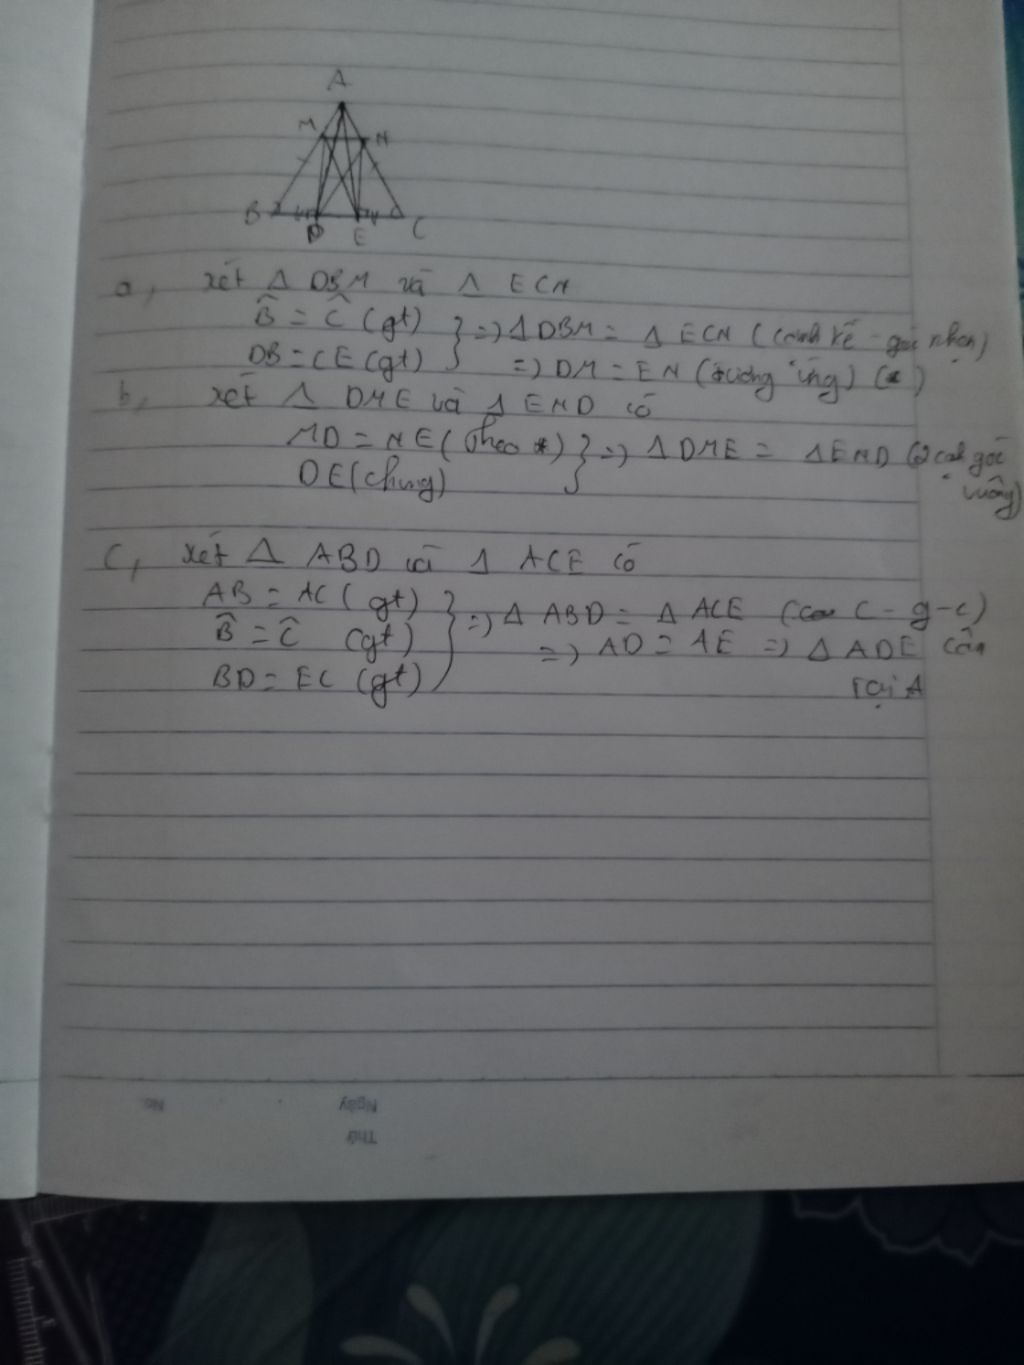 A
M N
B D E C
a, xét Δ DBM và Δ ECN
B̂ = Ĉ (gt) } => Δ DBM = Δ ECN (cạnh kề - góc nhọn)
DB = CE (gt) => DM = EN (tương ứng) (*)
b, xét Δ DME và Δ END có
MD = NE (theo *) } => Δ DME = Δ END (2 cạh góc vuông)
DE (chung)
c, xét Δ ABD và Δ ACE có
AB = AC (gt) } => Δ ABD = Δ ACE (c - g - c)
B̂ = Ĉ (gt) => AD = AE => Δ ADE cân
BD = EC (gt) tại A
No.
Ngày
Thứ